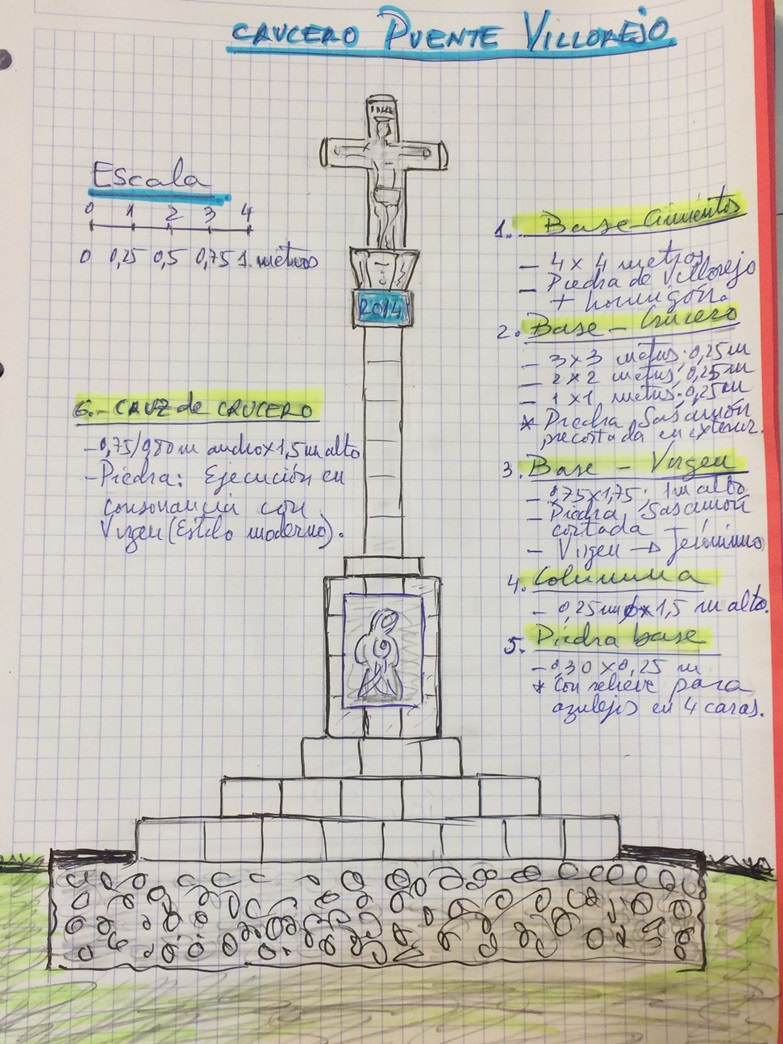 CRUCERO PUENTE VILLOREJO
Escala
0 1 2 3 4
0 0,25 0,5 0,75 1 metros
2014
6.- CRUZ de CRUCERO
-0,75/0,80 m ancho x 1,5 m alto
-Piedra: Ejecución en
consonancia con
Virgen (Estilo moderno).
1.. Base-Cimientos
- 4 x 4 metros
- Piedra de Villorejo
+ hormigón.
2. Base - Crucero
- 3 x 3 metros: 0,25 m
- 2 x 2 metros: 0,25 m
- 1 x 1 metros: 0,25 m
* Piedra Sasamón
precortada en exterior.
3. Base - Virgen
- 0,75 x 1,75: 1 m alto
- Piedra Sasamón
cortada
- Virgen → Jerónimo
4. Columna
- 0,25 m x 1,5 m alto.
5. Piedra base
- 0,30 x 0,25 m
* Con relieve para
azulejos en 4 caras.